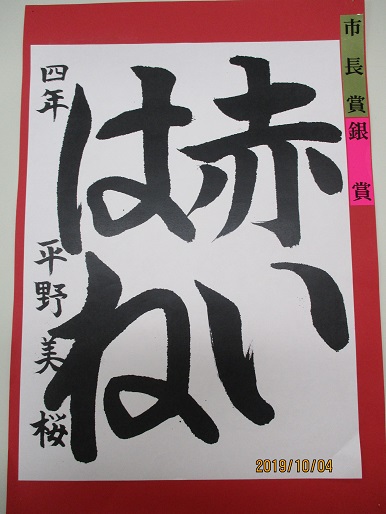 市長賞
銀賞
赤い
はね
四年 平野美桜
2019/10/04